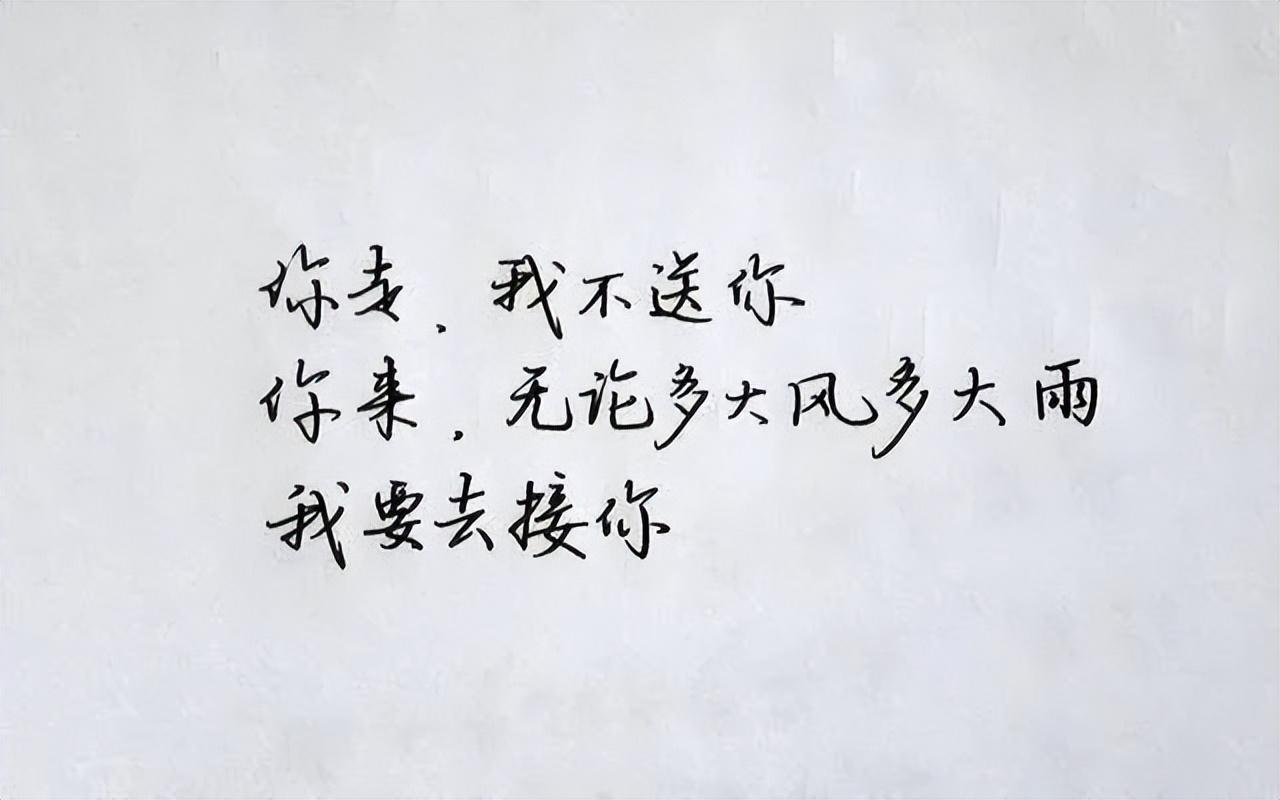 你走，我不送你
你来，无论多大风多大雨
我要去接你